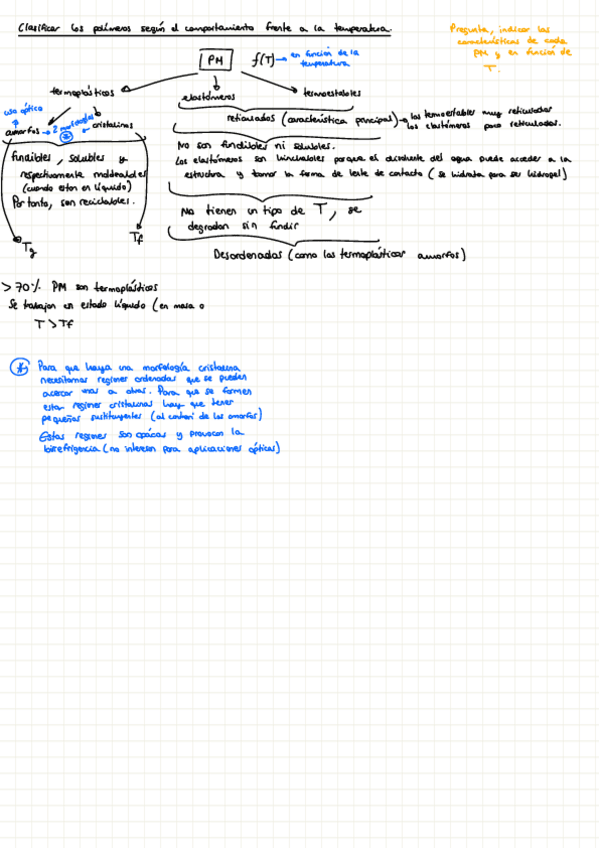 Clasificar los polímeros según el comportamiento frente a la temperatura.
Pregunta, indicar las
características de cada
PM y en función de
T.
PM
f(T) → en función de la
temperatura
termoplásticos
elastómeros
termoestables
uso óptico
amorfos → 2 morfologías
* cristalinos
reticulados (característica principal) → los termoestables muy reticulados
los elastómeros poco reticulados.
fundibles, solubles y
respectivamente moldeables
(cuando están en líquido)
Por tanto, son reciclables.
Tg
Tf
No son fundibles ni solubles.
Los elastómeros son hinchables porque el disolvente del agua puede acceder a la
estructura y tomar la forma de lente de contacto (se hidrata para ser hidrogel)
No tienen un tipo de T, se
degradan sin fundir
Desordenadas (como los termoplásticos amorfos)
> 70% PM son termoplásticos
Se trabajan en estado líquido (en masa o
T > Tf
* Para que haya una morfología cristalina
necesitamos regiones ordenadas que se pueden
acercar unas a otras. Para que se formen
estas regiones cristalinas hay que tener
pequeños sustituyentes (al contrari de los amorfos)
Estas regiones son opácas y provocan la
birrefrigencia (no interesan para aplicaciones ópticas)